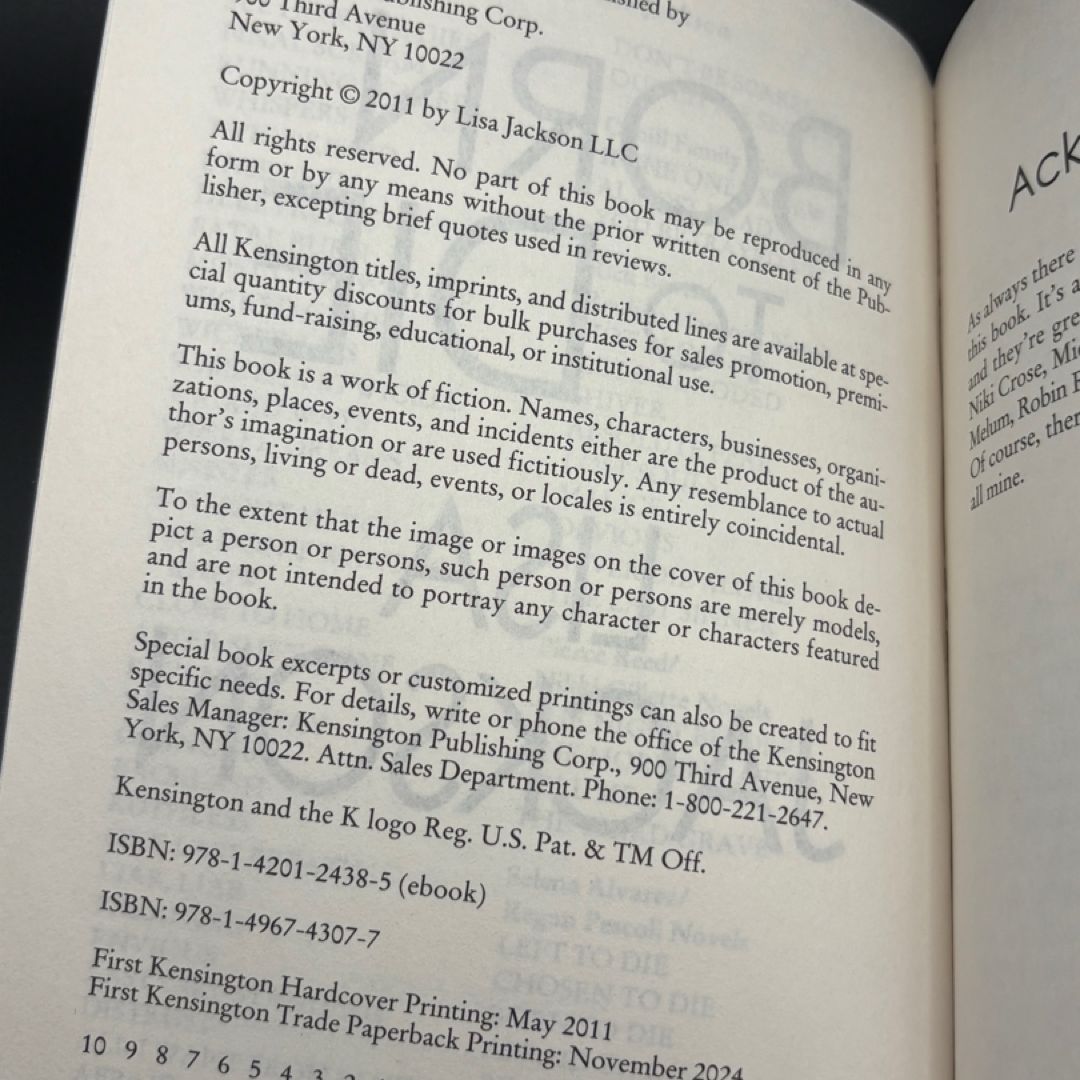 by
Publishing Corp.
Third Avenue
New York, NY 10022
Copyright © 2011 by Lisa Jackson LLC
All rights reserved. No part of this book may be reproduced in any
form or by any means without the prior written consent of the Pub-
lisher, excepting brief quotes used in reviews.
All Kensington titles, imprints, and distributed lines are available at spe-
cial quantity discounts for bulk purchases for sales promotion, premi-
ums, fund-raising, educational, or institutional use.
This book is a work of fiction. Names, characters, businesses, organi-
zations, places, events, and incidents either are the product of the au-
thor's imagination or are used fictitiously. Any resemblance to actual
persons, living or dead, events, or locales is entirely coincidental.
To the extent that the image or images on the cover of this book de-
pict a person or persons, such person or persons are merely models,
and are not intended to portray any character or characters featured
in the book.
Special book excerpts or customized printings can also be created to fit
specific needs. For details, write or phone the office of the Kensington
Sales Manager: Kensington Publishing Corp., 900 Third Avenue, New
York, NY 10022. Attn. Sales Department. Phone: 1-800-221-2647.
Kensington and the K logo Reg. U.S. Pat. & TM Off.
ISBN: 978-1-4201-2438-5 (ebook)
ISBN: 978-1-4967-4307-7
First Kensington Hardcover Printing: May 2011
First Kensington Trade Paperback Printing: November 2024
10 9 8 7 6 5 4 3 2
ACK
As always there
this book. It's a
and they're gre
Niki Crose, Mi
Melum, Robin
Of course, ther
all mine.